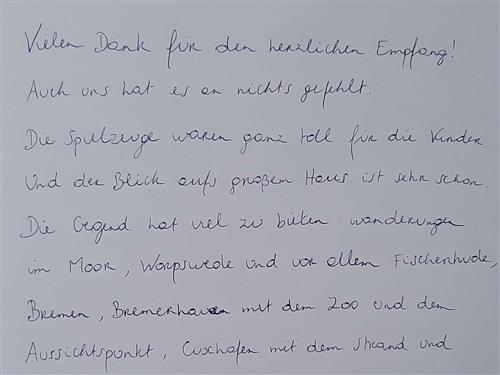 Vielen Dank für den herzlichen Empfang!
Auch uns hat es an nichts gefehlt.
Die Spielzeuge waren ganz toll für die Kinder
Und der Blick aufs großem Haus ist sehr schön.
Die Gegend hat viel zu bieten: wanderungen
im Moor, Worpswede und vor allem Fischerhude,
Bremen, Bremerhaven mit dem Zoo und dem
Aussichtspunkt, Cuxhafen mit dem Strand und